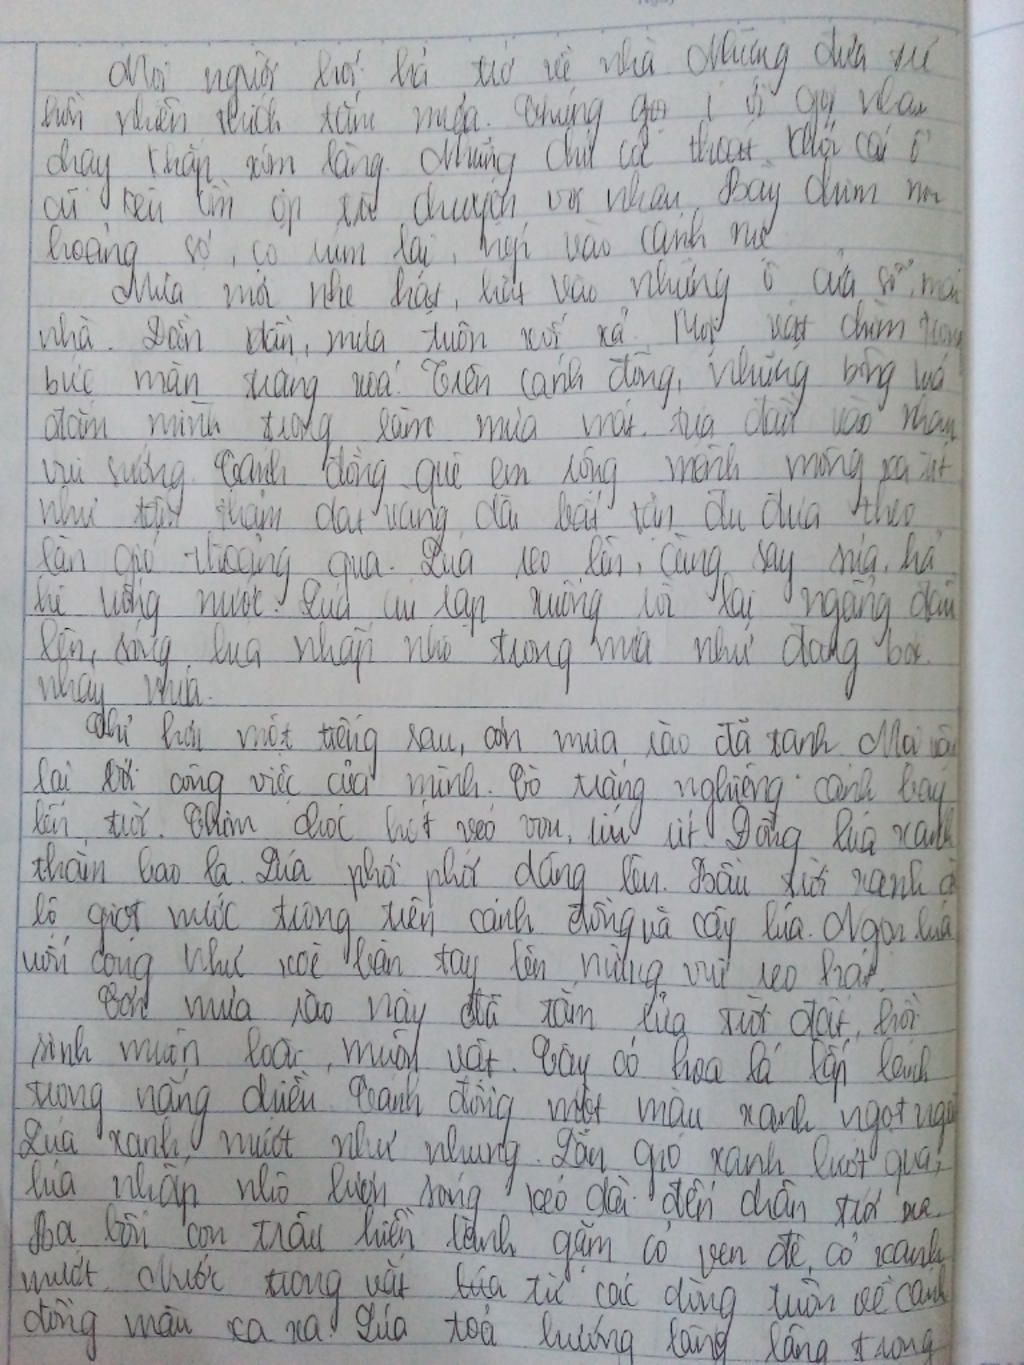 Mọi người hối hả trở về nhà. Những đứa trẻ
hồn nhiên thích tắm mưa. Chúng gọi í ới gọi nhau
chạy khắp xóm làng. Những chú cá thoát khỏi cái ổ
cũ kêu ồm ộp trò chuyện với nhau. Bầy chim non
hoảng sợ, co rúm lại, nép vào cánh mẹ
Mưa mới nhẹ hạt, hắt vào những ô cửa sổ, mái
nhà. Dần dần, mưa tuôn xối xả. Mọi vật chìm trong
bức màn trắng xoá. Trên cánh đồng, những bông lúa
đắm mình trong làn mưa mát, tựa đầu vào nhau
vui sướng. Cánh đồng quê em rộng mênh mông xa tít
như thảm dát vàng, dài bất tận đu đưa theo
làn gió thoảng qua. Lúa reo lên, càng say sưa, hả
hê uống nước. Lúa rạp xuống rồi lại ngẩng đầu
lên, sóng lúa nhấp nhô trong mưa như đang
nhảy múa.
Chỉ hơn một tiếng sau, cơn mưa rào đã tạnh. Mọi
lại với công việc của mình. Cò trắng nghiêng cánh bay
lên trời. Chim chóc hót véo von, ríu rít. Đồng lúa xanh
thẳm bao la. Lúa phơi phới dâng lên. Bầu trời xanh
lộ giọt nước trong trên cánh đồng và cây lúa. Ngọn lúa
uốn cong như xoè bàn tay lên mừng vui reo hát.
Cơn mưa rào này đã tắm rửa trời đất, hồi
sinh muôn loài, muôn vật. Cây cỏ hoa lá lấp lánh
trong nắng chiều. Cánh đồng một màu xanh ngọt ngào
Lúa xanh mướt như nhung. Làn gió xanh lướt qua,
lúa nhấp nhô lượn sóng kéo dài đến chân trời xa.
Ba bốn con trâu hiền lành gặm cỏ ven đê, cỏ xanh
mướt. Nước trong vắt từ các dòng tuôn về cánh
đồng màu xa xa. Lúa toả hương lâng lâng trong